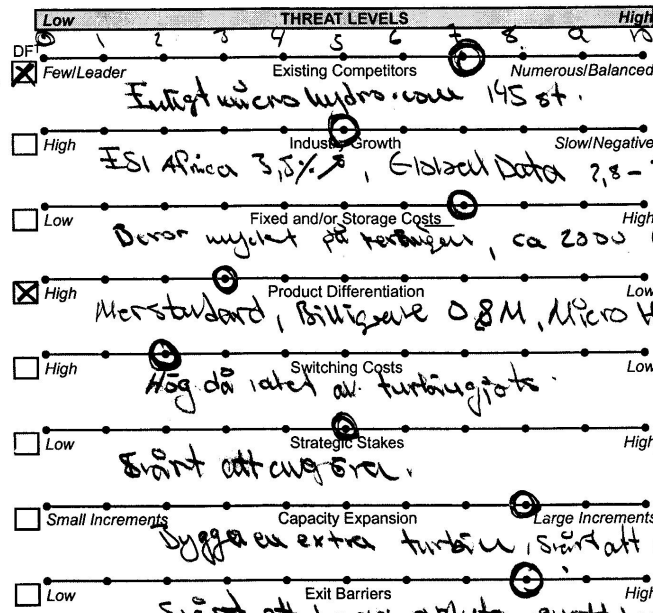 Low THREAT LEVELS High
0 1 2 3 4 5 6 7 8 9 10
DF
Few/Leader Existing Competitors Numerous/Balanced
Enligt micro hydro.com 145 st.
High Industry Growth Slow/Negative
ESI Africa 3,5% , Global Data 2,8 -
Low Fixed and/or Storage Costs High
Beror mycket på , ca 2000
High Product Differentiation Low
Mer standard, Billigare 0,8M, Micro
High Switching Costs Low
Hög då av
Low Strategic Stakes High
Svårt att avgöra.
Small Increments Capacity Expansion Large Increments
Bygga en extra turbin, svårt att
Low Exit Barriers High
Svårt att